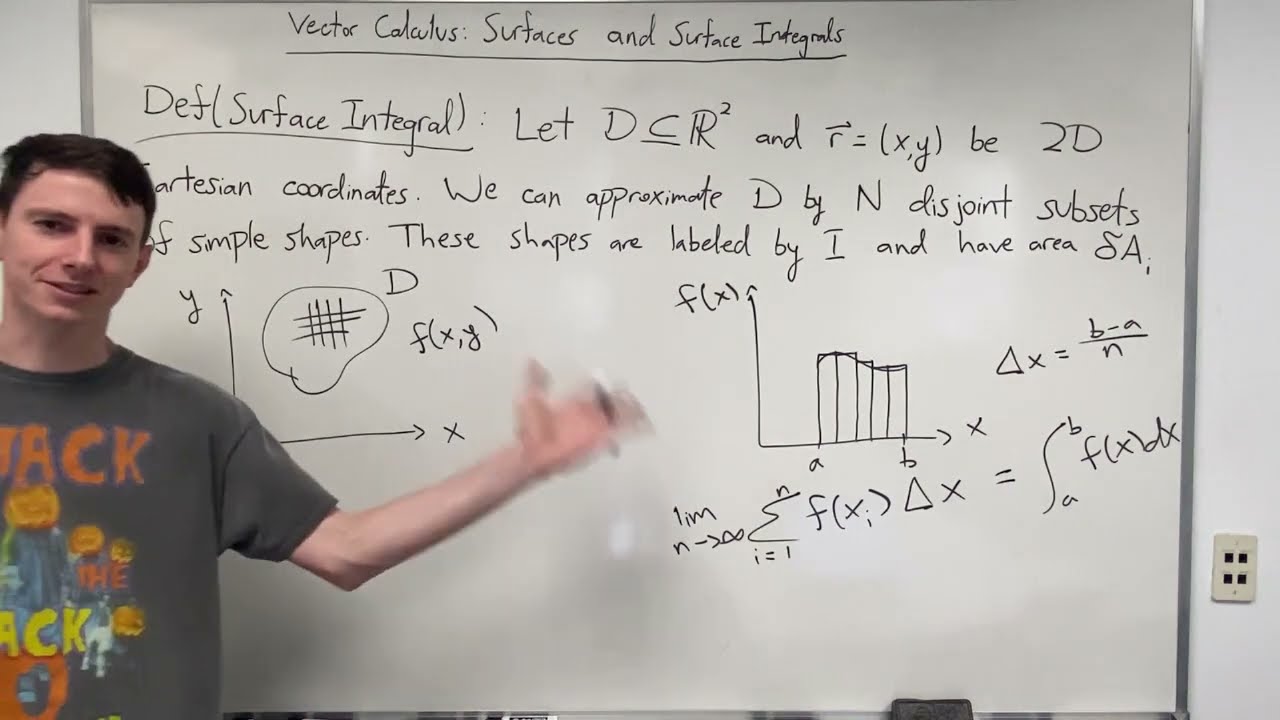 Vector Calculus: Surfaces and Surface Integrals
Def(Surface Integral): Let D ⊆ ℝ² and r⃗ = (x,y) be 2D
artesian coordinates. We can approximate D by N disjoint subsets
of simple shapes. These shapes are labeled by I and have area δAᵢ
y
D
f(x,y)
x
f(x)
a
b
x
Δx = (b-a)/n
lim n->∞ Σ i=1 n f(xᵢ) Δx = ∫ₐᵇ f(x)dx
JACK
THE
ACK
O